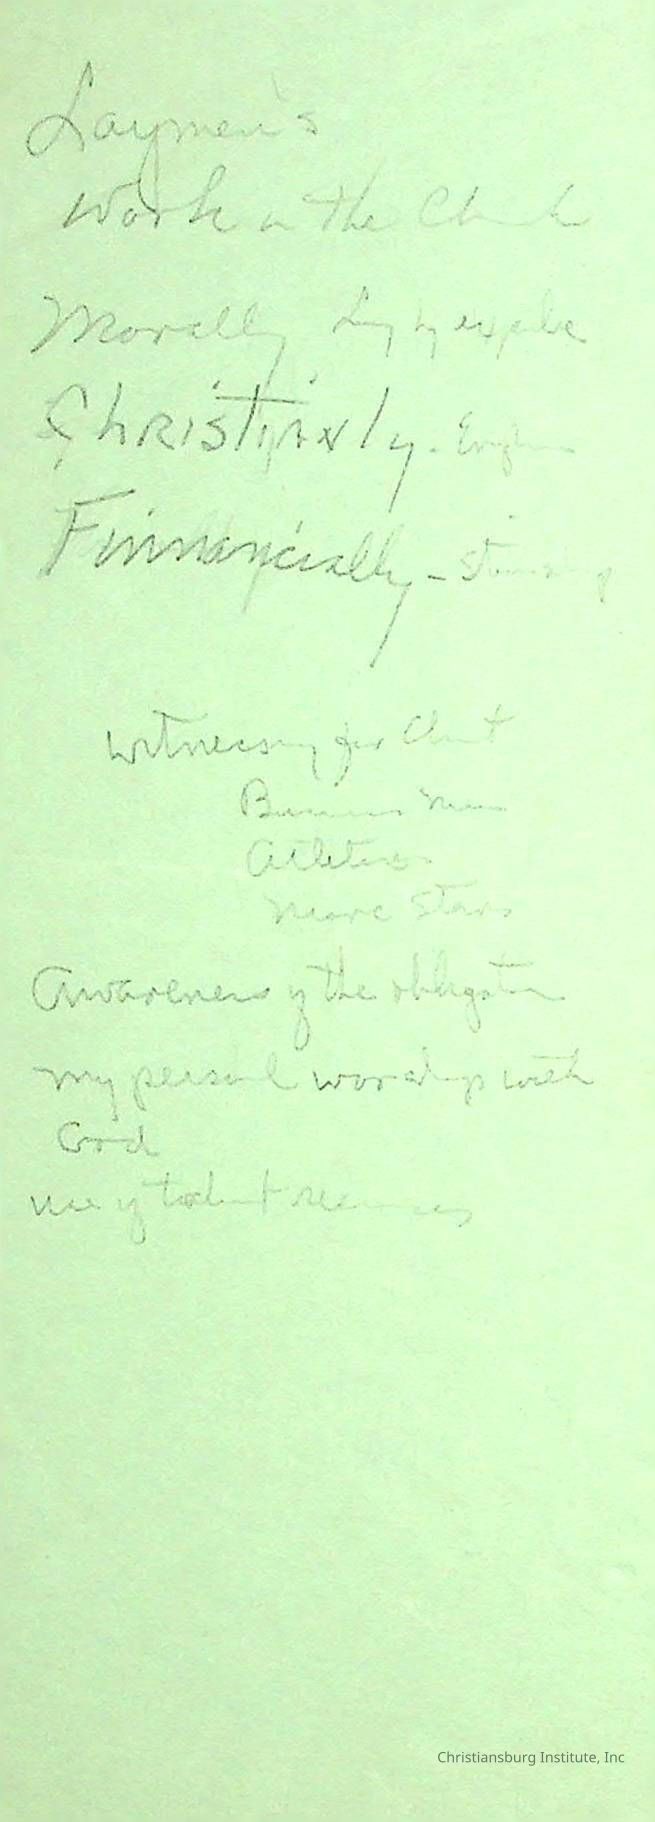 Laymen's
Work in the Church
Morally Living by example
Christianly -
Finnancially - Stewardship
Witnessing for Christ
Business Men
Athletes
Movie Stars
Awareness of the obligation
my personal worship with
God
use of talent resources
Christiansburg Institute, Inc